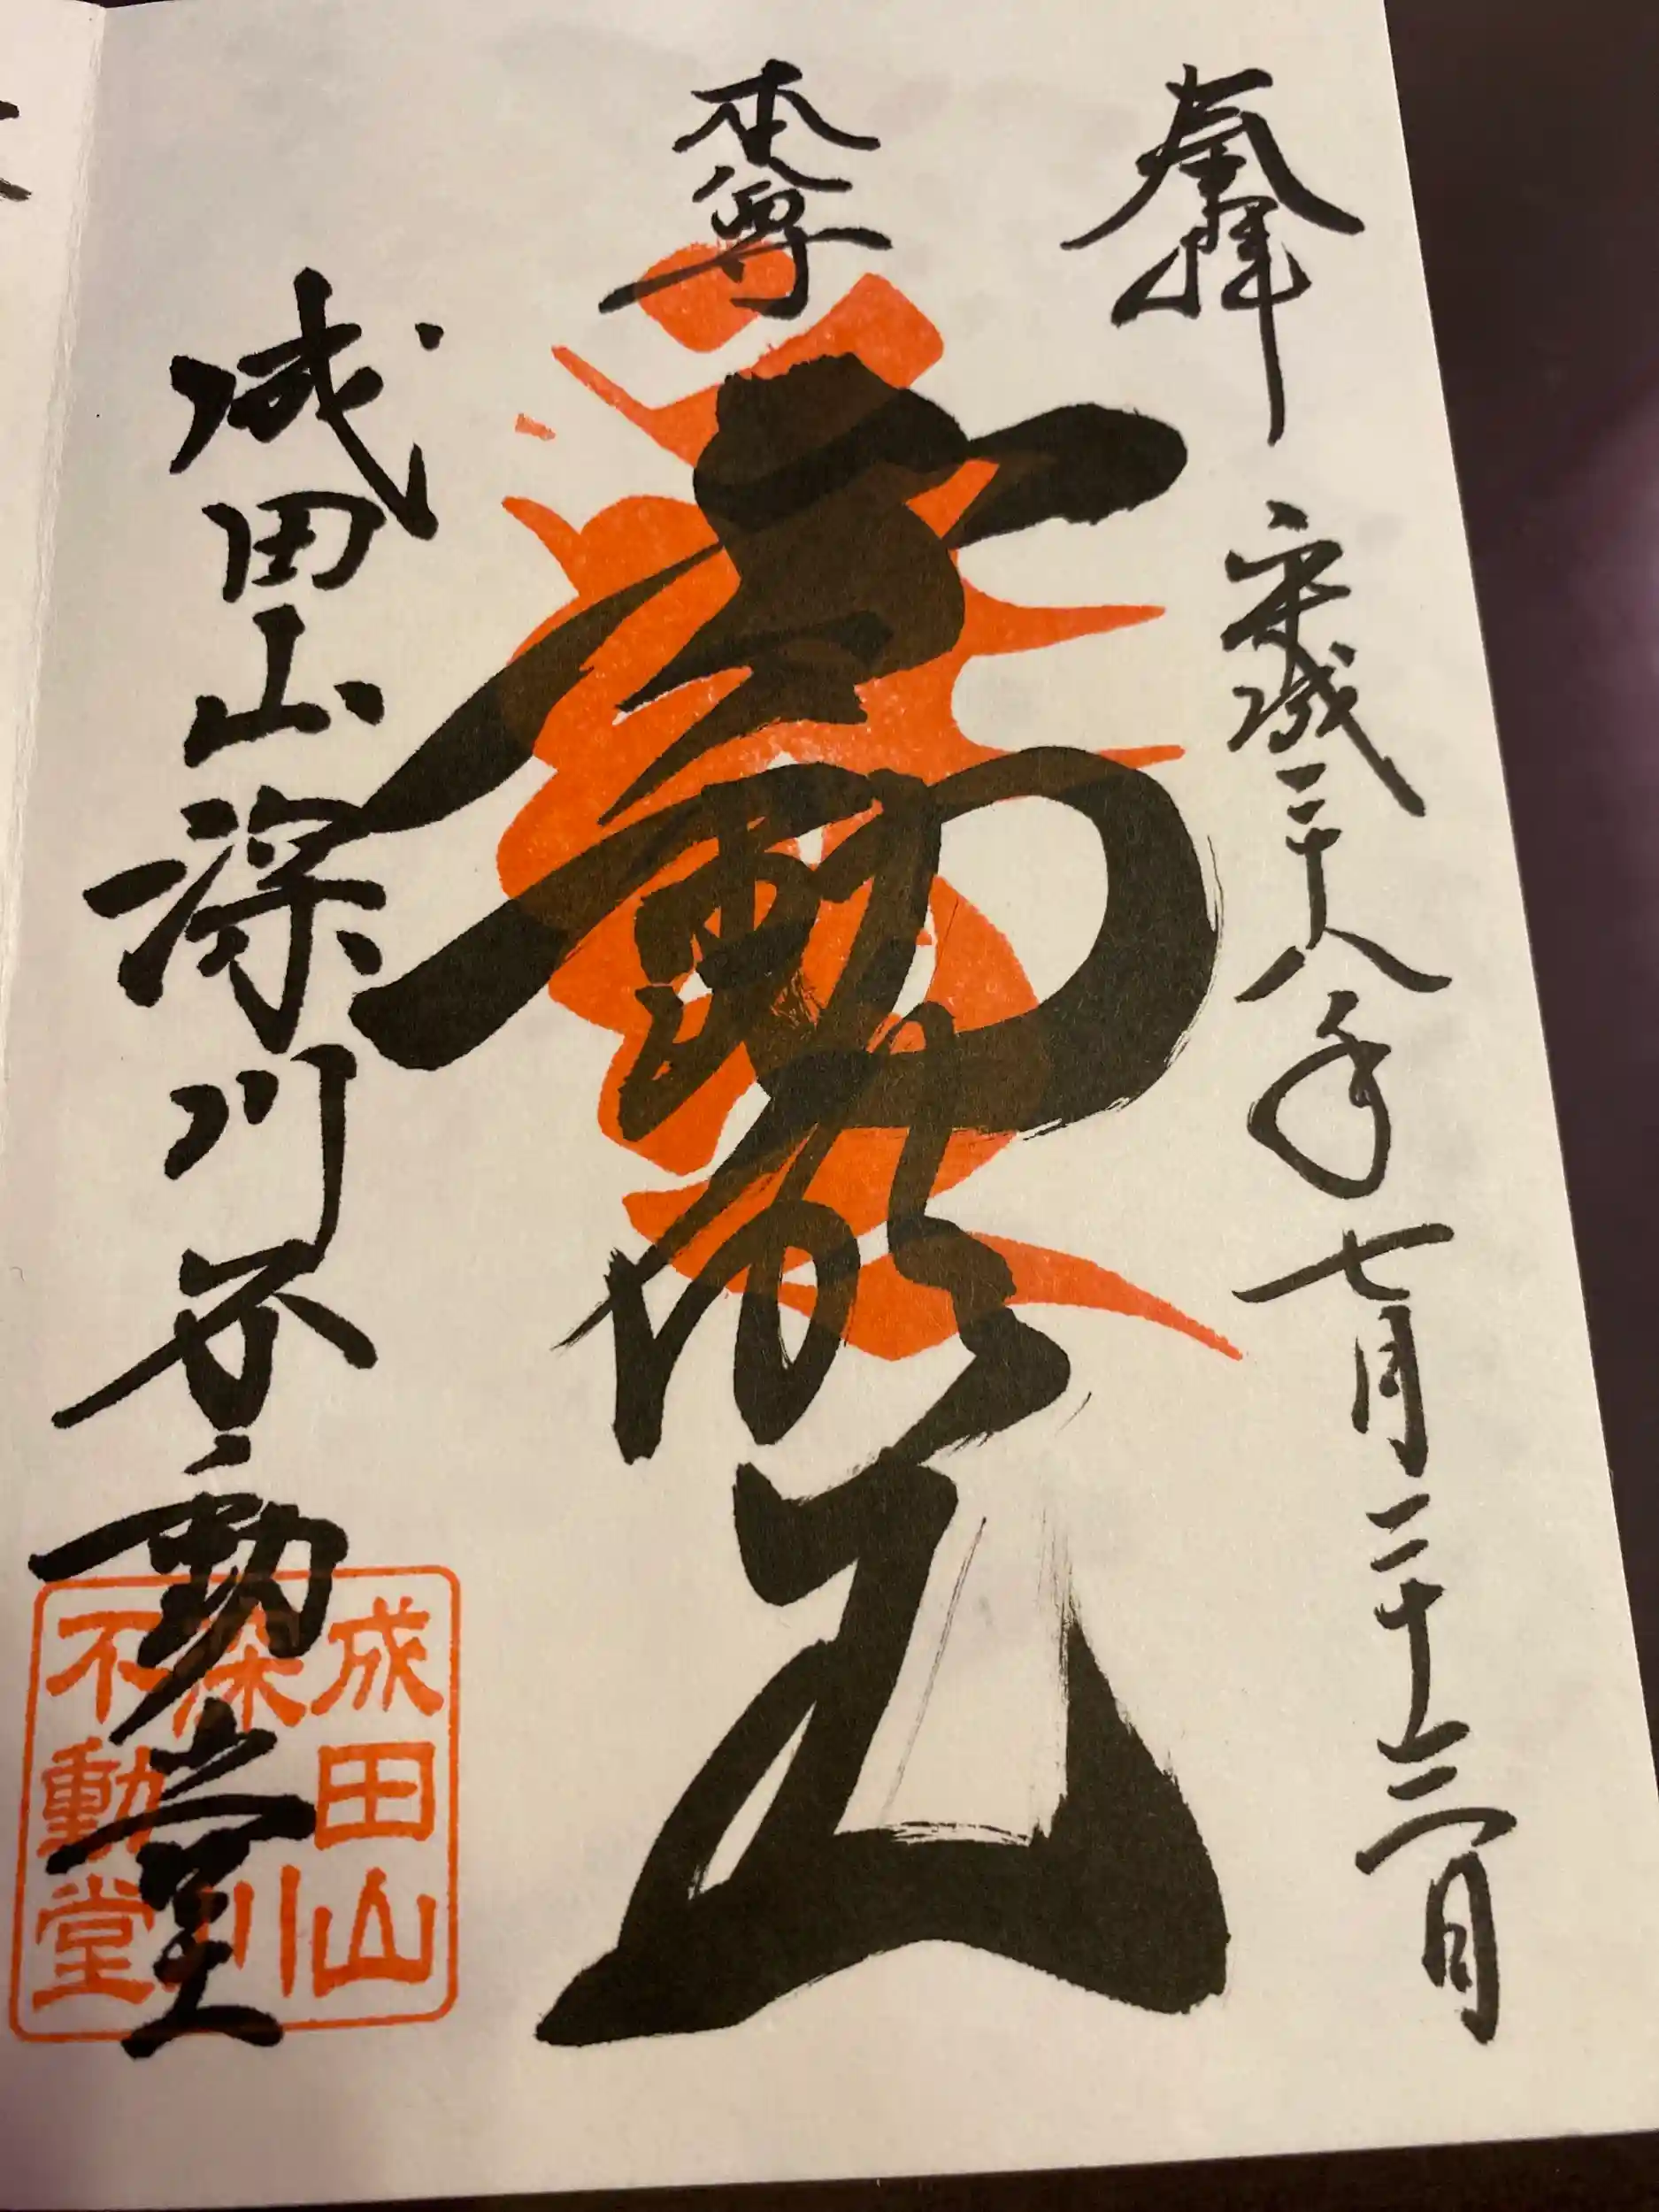 奉拝
平成二十八年七月二十三日
本尊
不動明王
成田山深川不動堂
成田山
深川
不動堂